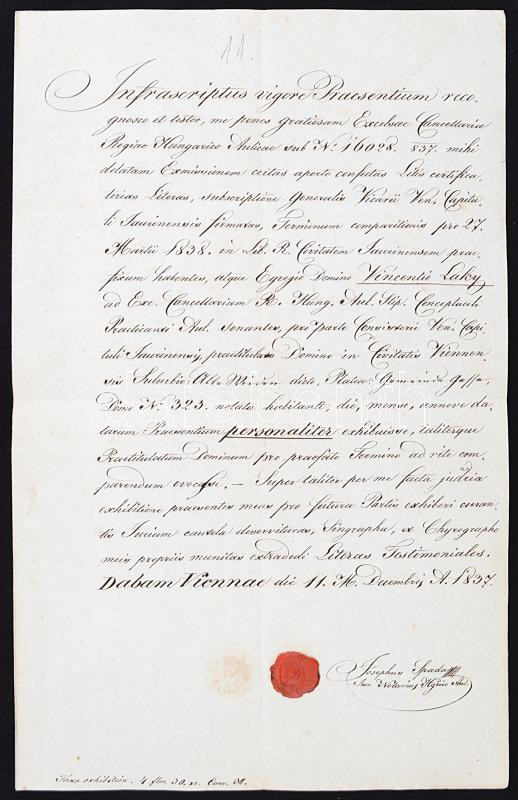 11.
Infrascriptus vigore Praesentium reco-
gnosco et testor, me penes gratiosam Excelsae Cancellariae
Regiae Hungarico Aulicae sub N: 16028. 837. mihi
delatam Exmissionem certas aperto confectas Litis certifica-
torias Literas, subscriptione Generalis Vicarii Ven. Capitu-
li Jaurinensis firmatas, Terminum comparitionis pro 27.
Martii 1838. in Lib. R. Civitatem Jaurinensem prae-
fixum habentes, atque Egregio Domino Vincentio Laky
ad Exc. Cancellariam R. Hung. Aul. Stip. Conceptuali
Practicanti Aul. sonantes, pro parte Consistorii Ven. Capi-
tuli Jaurinensis, praetitulato Domino in Civitatis Viennen-
sis Suburbio Alte Wieden dicto, Platea: Gemeinde Gasse,
Domo N: 323. notata habitante, die, mense, annove da-
tarum Praesentium personaliter exhibuisse, taliterque
Praetitulatum Dominum pro praefato Termino ad rite com-
parendum evocasse. — Super taliter per me facta judicia
exhibitione praesentes meas pro futura Partis exhiberi curan-
tis Jurium cautela deservituras, Singrapha, et Chyrographo
meis propriis munitas extradedi Literas Testimoniales.
Dabam Viennae die 11. M. Decembris A. 1837.
Josephus Spada
Jur. Notarius Hgrico Aul.
Taxa exhibition. 4 flor. 30. xr. Conv. M.